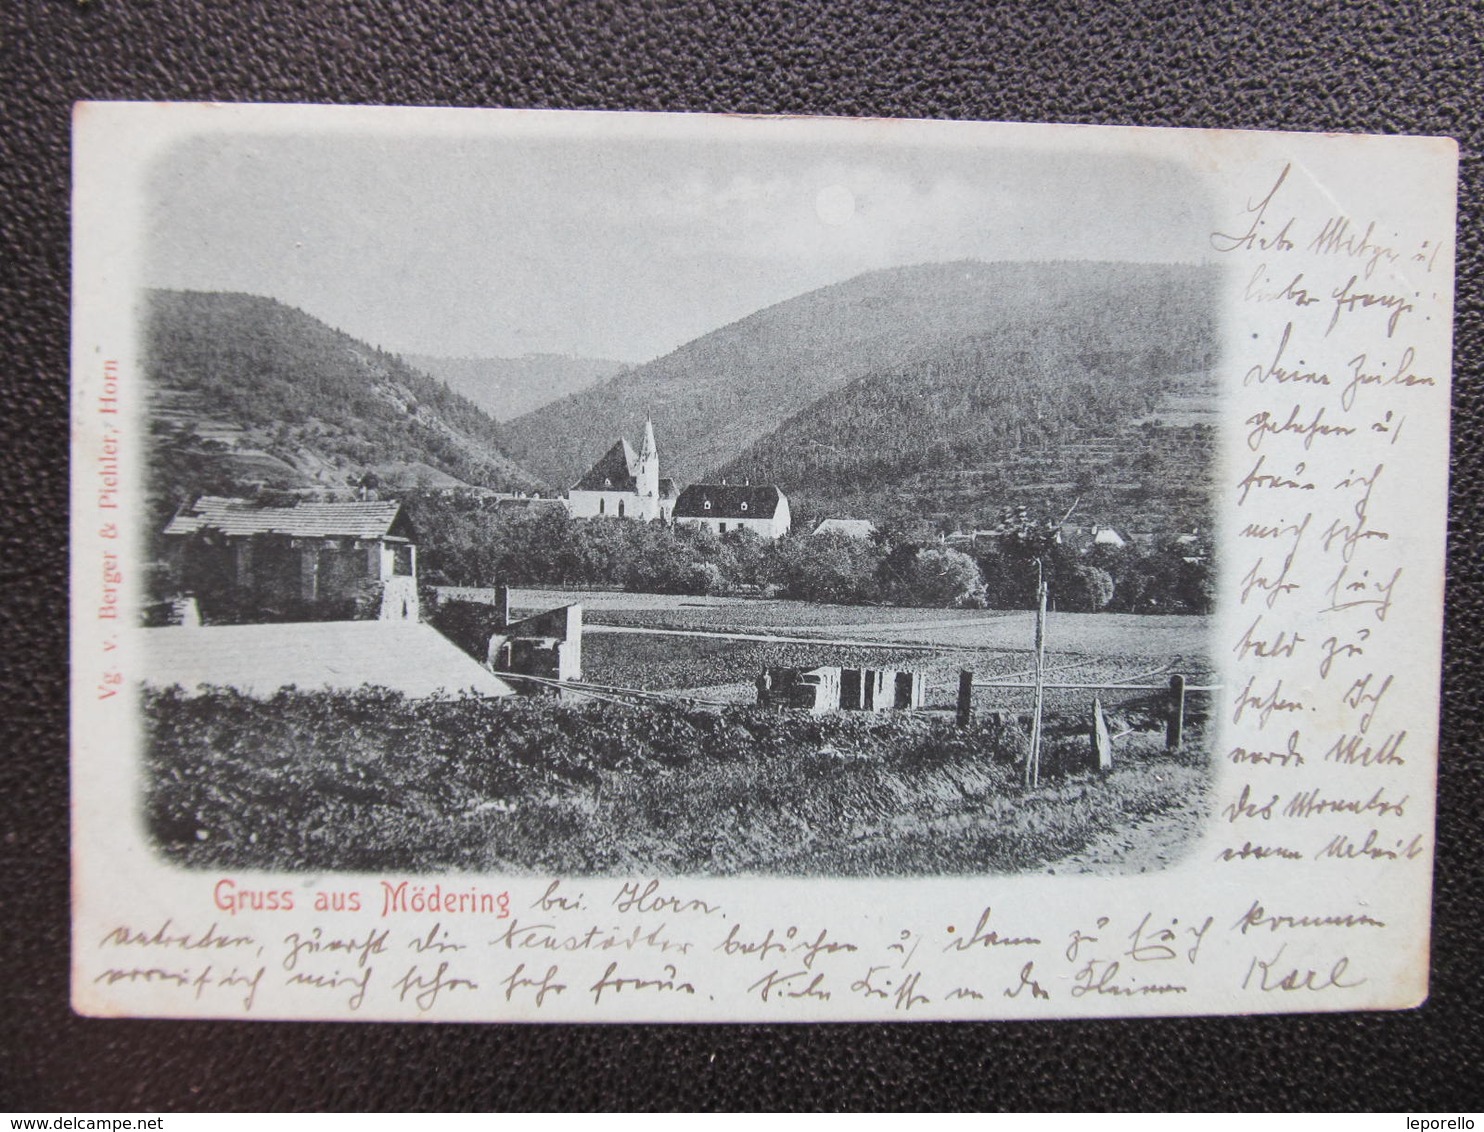 Liebe Metzi u/
lieber Franzi!
Deine Zeilen
gelesen u/
freue ich
mich schon
sehr Euch
bald zu
sehen. Ich
werde Mitte
des Monates
einen Urlaub
antreten, zuerst die Neustädter besuchen u/ dann zu Euch kommen
worauf ich mich schon sehr freue. Viele Küsse an die Kleinen Karl
Gruss aus Mödering bei Horn.
Vg. v. Berger & Pichler, Horn
delcampe.net
leporello